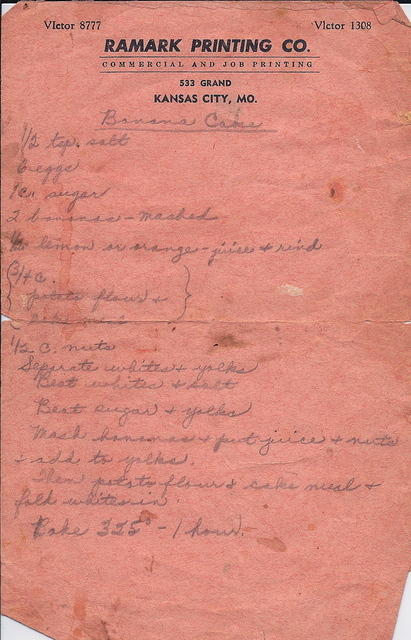 VIctor 8777 VIctor 1308
RAMARK PRINTING CO.
COMMERCIAL AND JOB PRINTING
533 GRAND
KANSAS CITY, MO.
Banana Cake
1/2 tsp. salt
6 eggs
1 c. sugar
2 bananas - mashed
1/2 lemon or orange - juice + rind
3/4 c.
potato flour +
cake meal
1/2 c. nuts
Separate whites + yolks
Beat whites + salt
Beat sugar + yolks
Mash bananas + put juice + nuts
+ add to yolks.
Then potato flour + cake meal +
fold whites in.
Bake 325° - 1 hour.